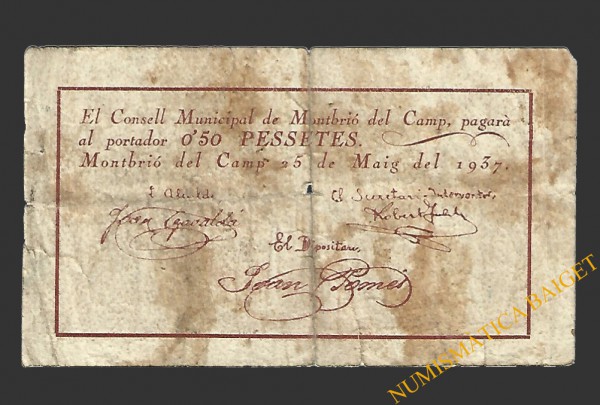 El Consell Municipal de Montbrió del Camp, pagarà
al portador 0'50 PESSETES.
Montbrió del Camp 25 de Maig del 1937.
L'Alcalde
El Secretari Interventor,
Joan
Robert
El Dipositari,
Joan Pomés
NUMISMATICA BAIGET